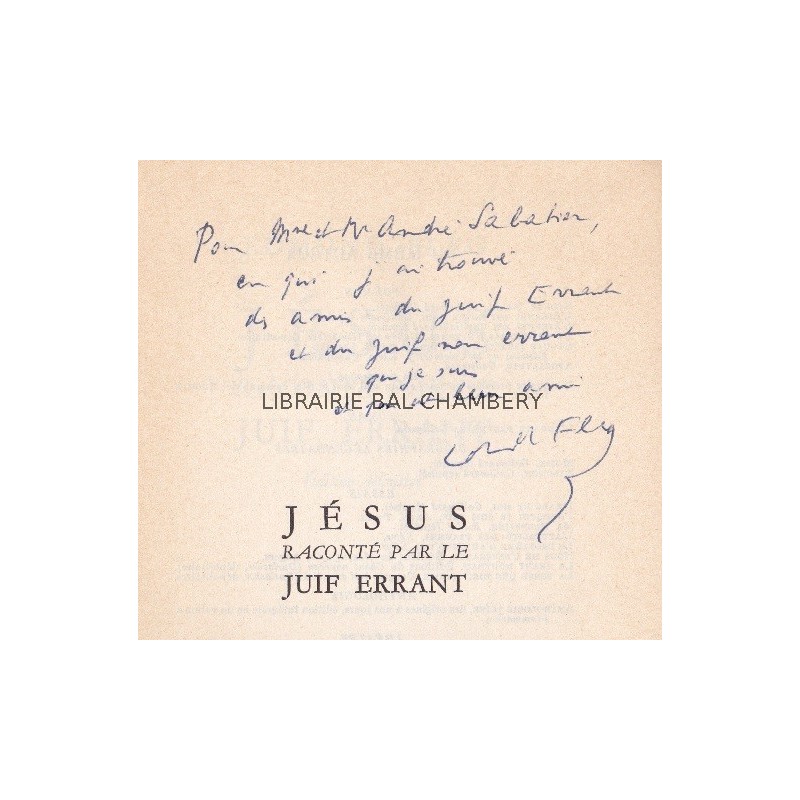 Pour Mme et Mr André Sabatier,
en qui j'ai trouvé
des amis du Juif Errant
et du juif non errant
que je suis
LIBRAIRIE BAL CHAMBERY
ami
Edmond Fleg
JÉSUS
RACONTÉ PAR LE
JUIF ERRANT